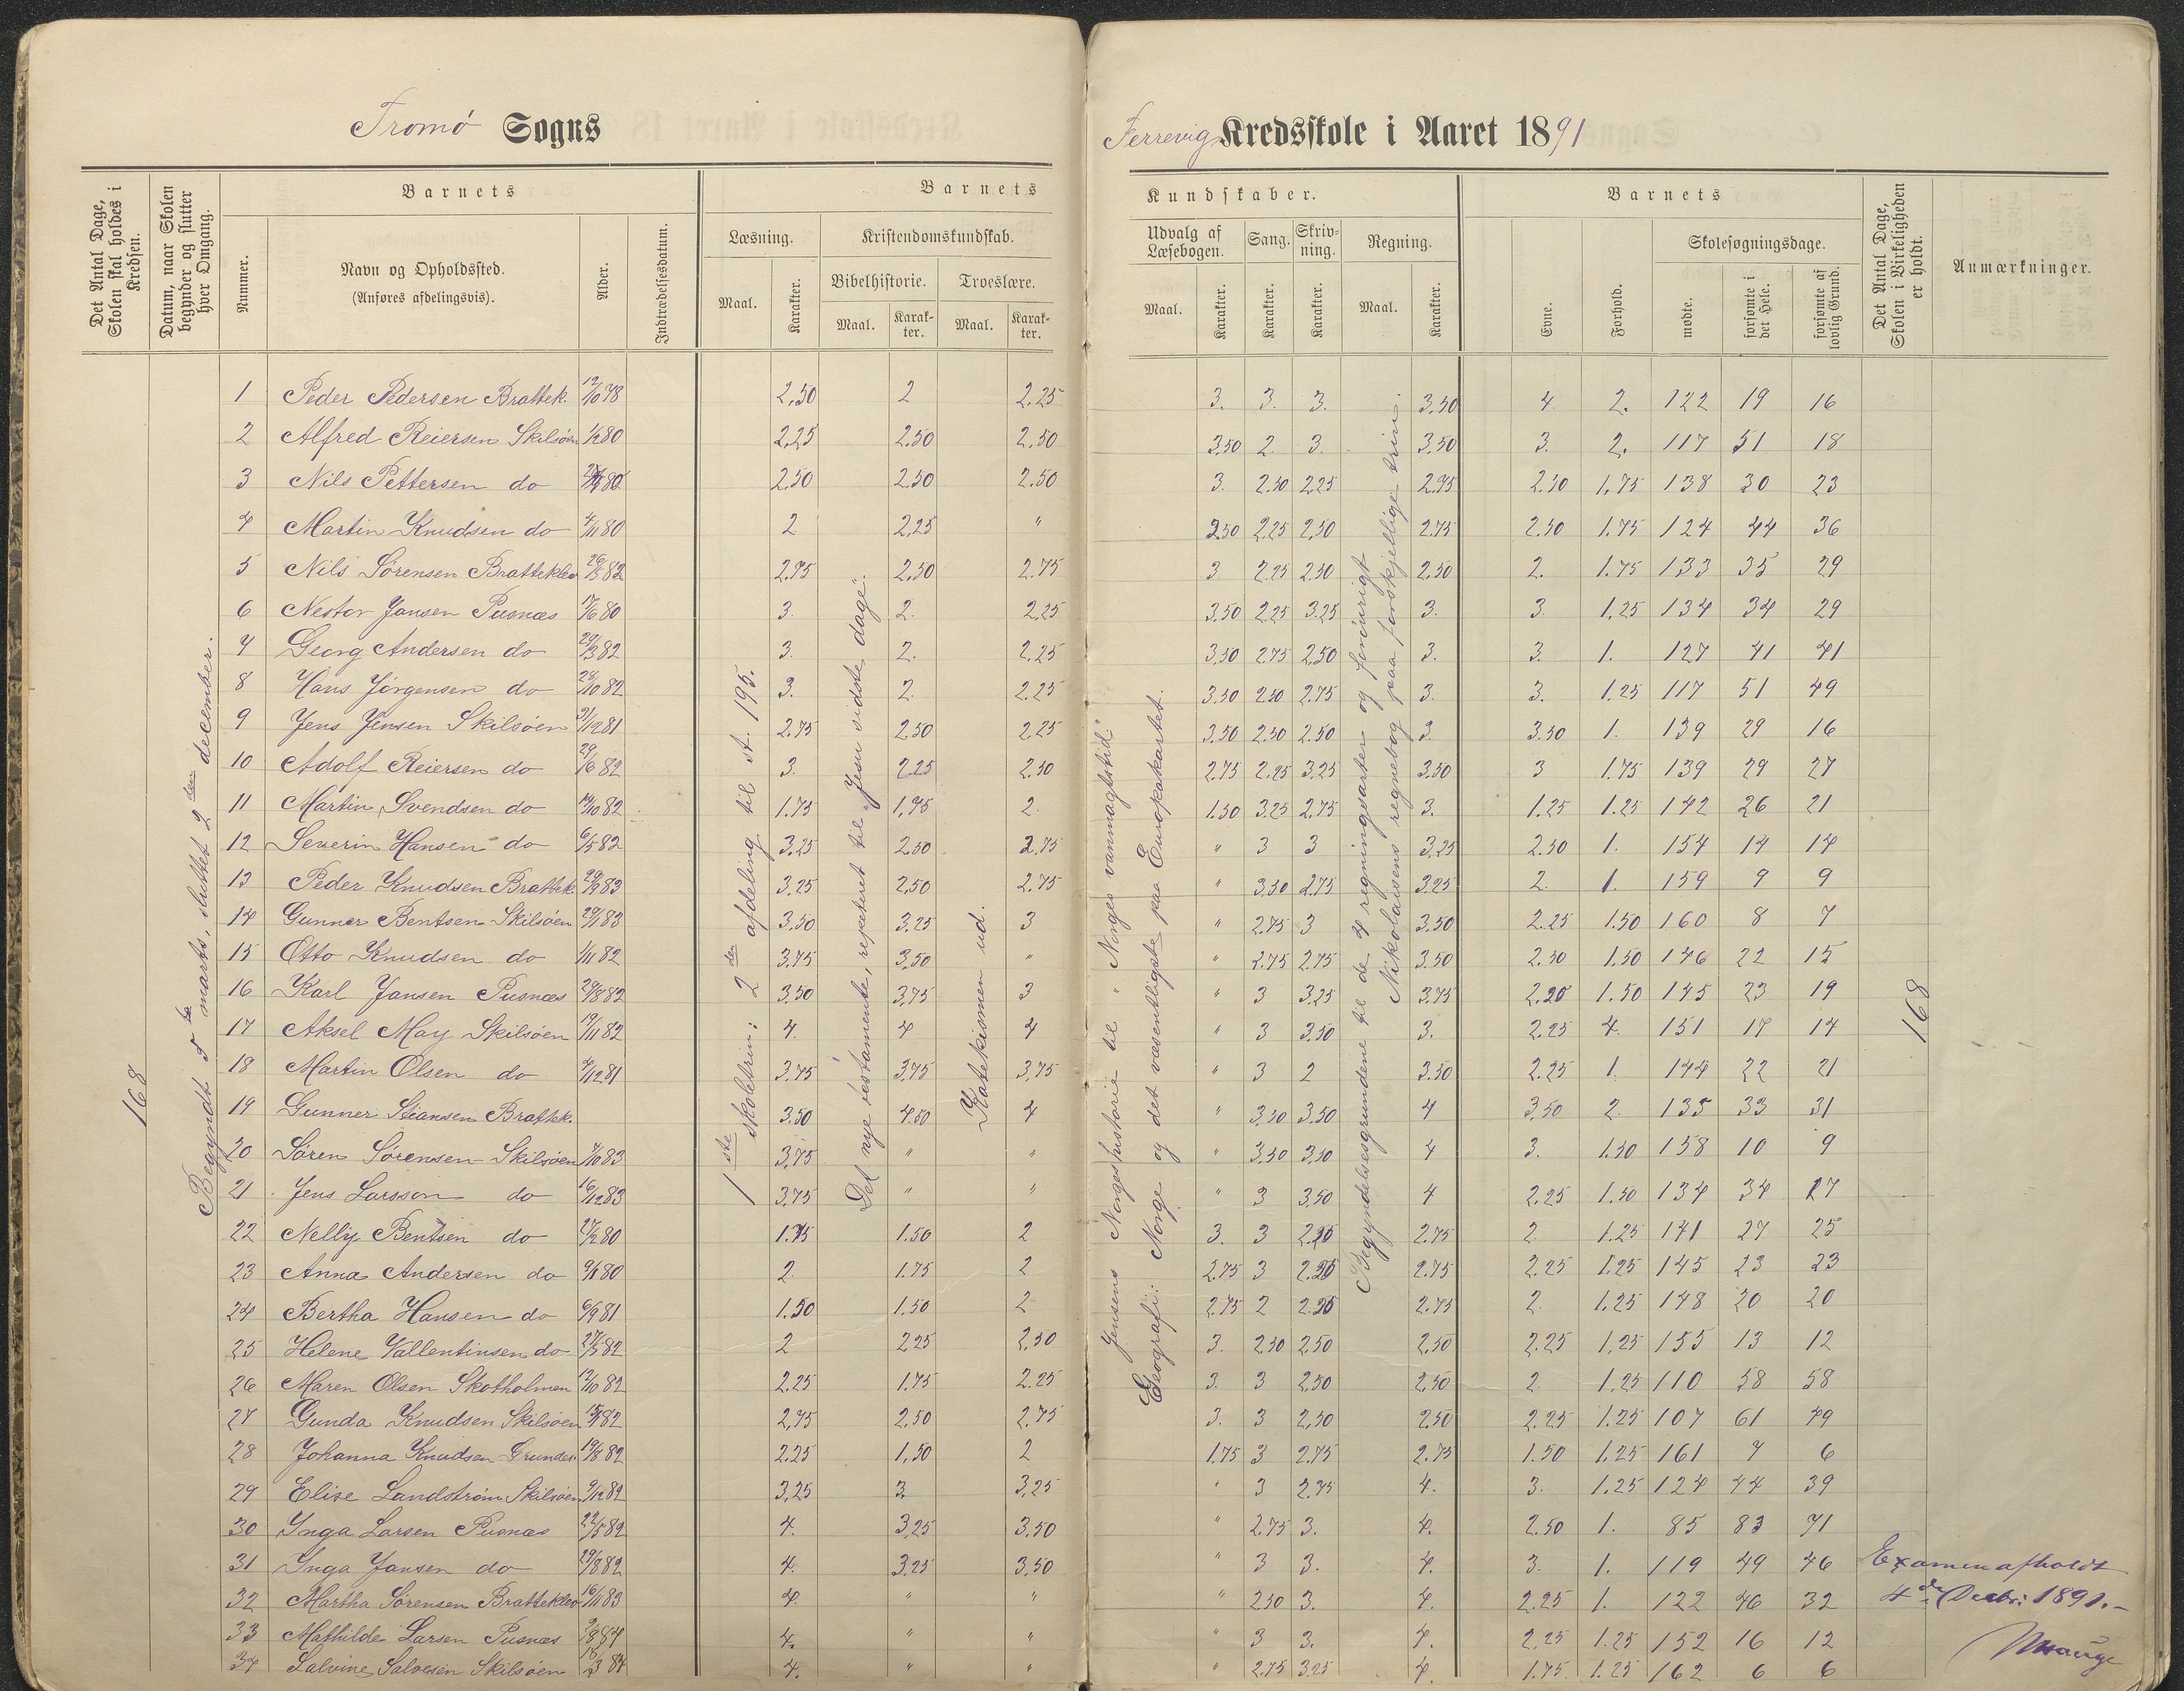 Tromø Sogns
Ferrevig Kredsskole i Aaret 1891
Det Antal Dage, Skolen skal holdes i Kredsen.
Datum, naar Skolen begynder og slutter hver Omgang.
Barnets
Nummer.
Navn og Opholdssted.
(Anføres afdelingsvis).
Alder.
Indtrædelsesdatum.
Barnets
Læsning.
Maal.
Karakter.
Kristendomskundskab.
Bibelhistorie.
Maal.
Karakter.
Troeslære.
Maal.
Karakter.
Kundskaber.
Udvalg af Læsebogen.
Maal.
Karakter.
Sang.
Karakter.
Skrivning.
Karakter.
Regning.
Maal.
Karakter.
Barnets
Evne.
Forhold.
Skolesøgningsdage.
mødte.
forsømte i det Hele.
forsømte af lovlig Grund.
Det Antal Dage, Skolen i Virkeligheden er holdt.
Anmærkninger.
168
Begyndt 5te marts, sluttet 2den december.
1ste skoletrin: 2den afdeling til St. 195.
Det nye testamente, repeteret til "Jesu sidste dage".
Katekismen ud.
Jensens Norgeshistorie til "Norges vanmagtstid".
Geografi: Norge og det væsentligste paa Europakartet.
Begyndelsesgrundene til de 4 regningsarter og forøvrigt
Nikolaisens regnebog paa forskjellige trin.
168
1 Peder Pedersen Brattek. 12/10 78 2,50 2 2.25 3. 3. 3. 3.50 4 2. 122 19 16
2 Alfred Reiersen Skilsøen 1/2 80 2,25 2.50 2.50 3.50 2 3. 3.50 3. 2. 117 51 18
3 Nils Pettersen do 80 2.50 2.50 2.50 3. 2.50 2.25 2.75 2.50 1.75 138 30 23
4 Martin Knudsen do 4/11 80 2 2,25 " 2.50 2.25 2,50 2.75 2.50 1.75 124 44 36
5 Nils Sørensen Bratteklev 26/5 82 2.75 2,50 2.75 3 2.25 2.50 2,50 2. 1.75 133 35 29
6 Nestor Jansen Pusnæs 17/6 80 3. 2. 2,25 3,50 2.25 3.25 3. 3. 1,25 134 34 29
7 Georg Andersen do 29/3 82 3. 2. 2.25 3,50 2.75 2,50 3. 3. 1. 127 41 41
8 Hans Jørgensen do 28/10 82 3. 2. 2.25 3.50 2.50 2.75 3. 3. 1.25 117 51 49
9 Jens Jensen Skilsøen 31/12 81 2.75 2,50 2.25 3.50 2.50 2.50 3. 3.50 1. 139 29 16
10 Adolf Reiersen do 29/6 82 3. 2.25 2.50 2.75 2.25 3.25 3.50 3 1.75 139 29 27
11 Martin Svendsen do 14/10 82 1.75 1,75 2. 1.50 3.25 2.75 3. 1.25 1.25 142 26 21
12 Severin Hansen do 6/5 82 3.25 2.50 2.75 " 3 3 3.25 2.50 1. 154 14 14
13 Peder Knudsen Brattek 20/9 83 3.25 2,50 2.75 " 3.50 2.75 3.25 2. 1. 159 9 9
14 Gunner Bentsen Skilsøen 29/1 83 3.50 3,25 3 " 2.75 3 3.50 2.25 1.50 160 8 7
15 Otto Knudsen do 1/11 82 3.75 3,50 " " 2.75 2.75 3.50 2.50 1.50 146 22 15
16 Karl Jansen Pusnæs 29/8 82 3,50 3,75 3 " 3 3.25 3.75 2.25 1.50 145 23 19
17 Aksel May Skilsøen 19/11 82 4. 4 4 " 3 3.50 3. 2.25 4. 151 17 14
18 Martin Olsen do 4/12 81 3.75 3.75 3,75 " 3 2 3.50 2.25 1. 144 22 21
19 Gunner Stiansen Brattek. 3.50 4.50 4 " 3,50 3.50 4 3,50 2. 135 33 31
20 Søren Sørensen Skilsøen 4/10 83 3.75 " " " 3.50 3,50 4 3. 1.50 158 10 9
21 Jens Larsson do 16/12 83 3.75 " " " 3 3,50 4 2.25 1.50 134 34 27
22 Nelly Bentsen do 27/2 80 1.75 1.50 2 3. 3 2.25 2.75 2. 1.25 141 27 25
23 Anna Andersen do 9/8 80 2. 1.75 2 2.75 3 2.25 2.75 2.25 1.25 145 23 23
24 Bertha Hansen do 6/9 81 1.50 1.50 2 2.75 2 2.25 2.75 2. 1.25 148 20 20
25 Helene Vallentinsen do 27/5 82 2 2.25 2,50 3. 2.50 2,50 2.50 2.25 1,25 155 13 12
26 Maren Olsen Skotholmen 12/10 82 2.25 1.75 2.25 3. 3 2,50 2,50 2. 1.25 110 58 58
27 Gunda Knudsen Skilsøen 82 2,75 2,50 2,75 3. 3 2,50 2,50 2.25 1.25 107 61 49
28 Johanna Knudsen Grundes. 19/8 82 2.25 1,50 2 1.75 3 2.75 2.75 1.50 1.25 161 7 6
29 Elise Landstrøm Skilsøen 9/12 82 3,25 3. 3,25 " 3 2.75 4. 3. 1.25 124 44 39
30 Inga Larsen Pusnæs 22/5 82 4. 3,25 3.50 " 2.75 3. 4. 2.50 1. 85 83 71
31 Inga Jansen do 29/8 82 4. 3,25 3,50 " 3 3. 4. 3. 1. 119 49 46
32 Martha Sørensen Bratteklev 16/11 83 4. " " " 2.50 3. 4. 2.25 1. 122 46 32
33 Mathilde Larsen Pusnæs 9/8 84 4. " " " 3 3. 4. 2.25 1.25 152 16 12
34 Salvine Salvesen Skilsøen 18/3 84 4. " " " 2.75 3.25 4. 1.75. 1.25 162 6 6
Examen afholdt
4de Decbr: 1891.-